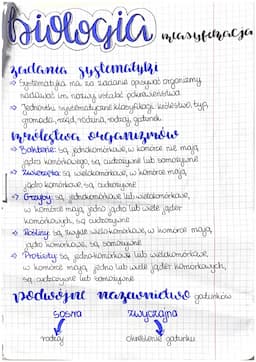 biologia klasyfikacja
zadania systematyki
⇒ Systematyka ma za zadanie opisywać organizmy
nadawać im nazwy ustalać pokrewieństwa
⇒ Jednostki systematyczne klasyfikacji: królestwo, typ,
gromada, rząd, rodzina, rodzaj, gatunek
królestwa organizmów
⇒ Bakterie: są jednokomórkowe, w komórce nie mają
jądra komórkowego, są cudzożywne lub samożywne
⇒ Zwierzęta: są wielokomórkowe, w komórce mają
jądro komórkowe, są cudzożywne
⇒ Grzyby: są jednokomórkowe lub wielokomórkowe,
w komórce mają jedno jądro lub wiele jąder
komórkowych, są cudzożywne
⇒ Rośliny: są zwykle wielokomórkowe, w komórce mają
jądro komórkowe, są samożywne
⇒ Protisty: są jednokomórkowe lub wielokomórkowe,
w komórce mają jedno lub wiele jąder komórkowych,
są cudzożywne lub samożywne
podwójne nazewnictwo gatunków
sosna zwyczajna
rodzaj określenie gatunku